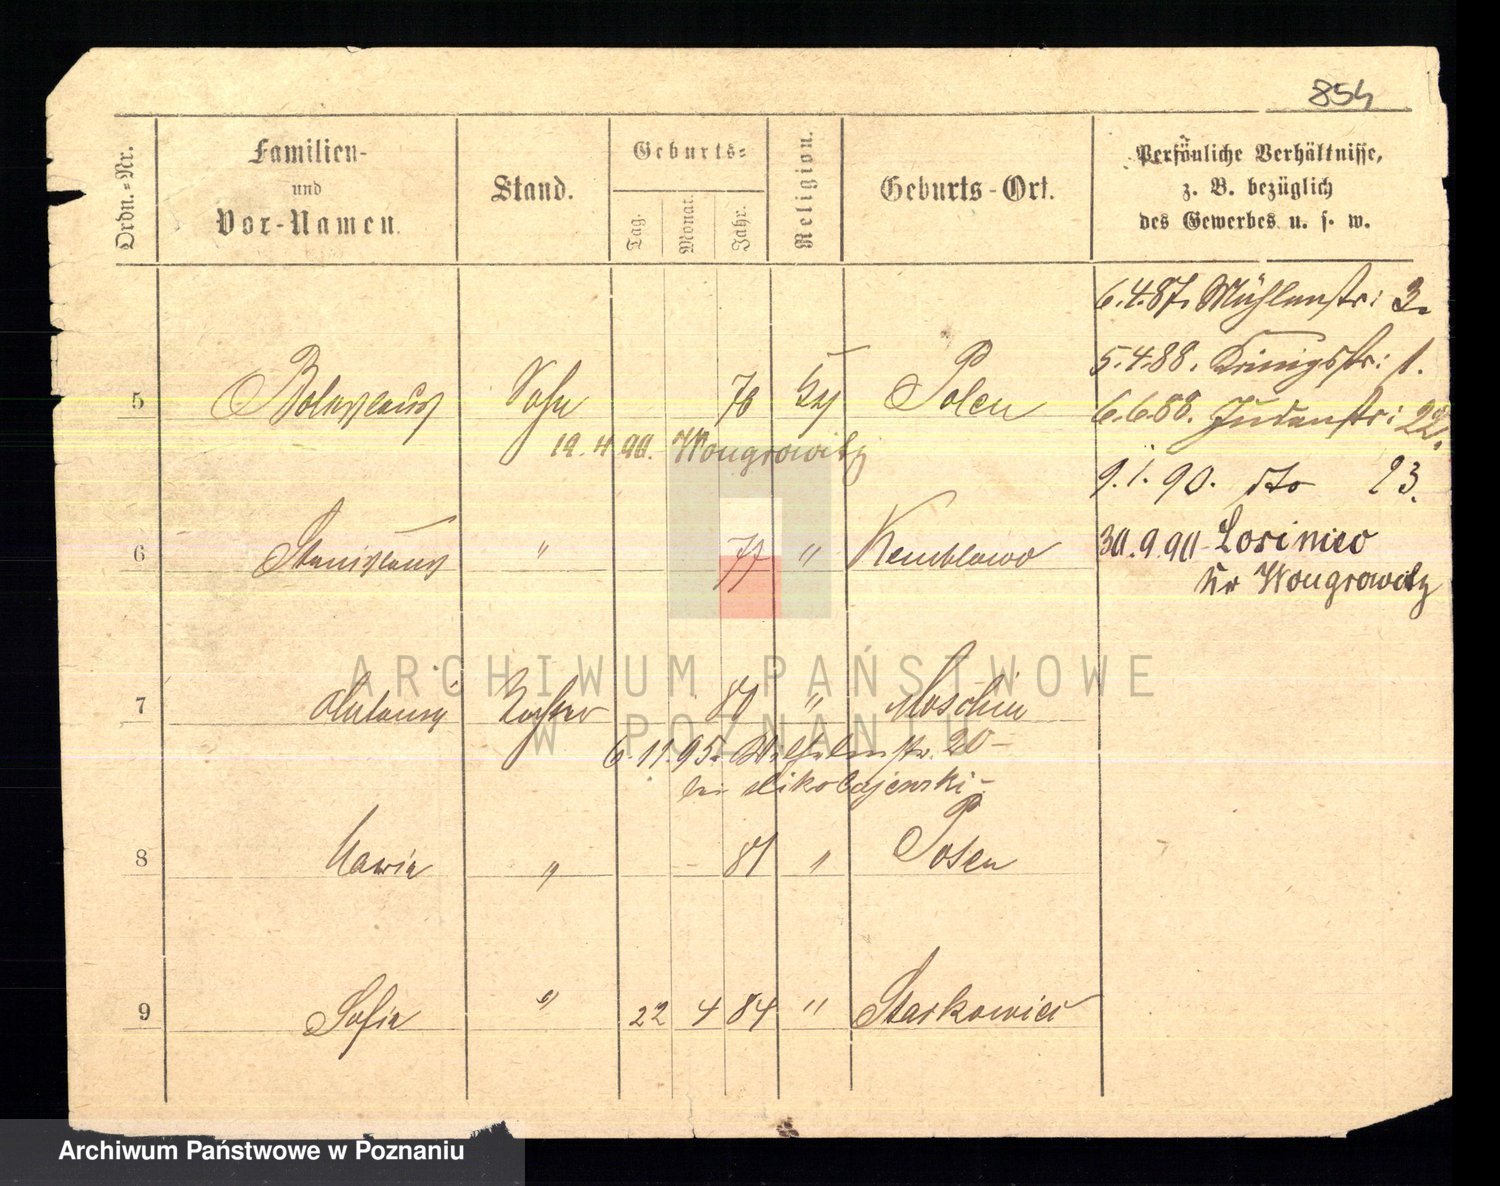 854
Ordn.-Nr.
Familien-
und
Vor-Namen.
Stand.
Geburts-
Tag.
Monat.
Jahr.
Religion.
Geburts-Ort.
Persönliche Verhältnisse,
z. B. bezüglich
des Gewerbes u. s. w.
6.4.87. Mühlenstr: 3.
5.4.88. Königstr: 1.
5 Boleslaus Sohn 76 Posen
6.6.88. Judenstr: 22.
19.4.90. Wongrowitz
9.1.90. dto 23.
6 Stanislaus " 77 " Kemblowo
30.9.90 Losiniec
Kr Wongrowitz
ARCHIWUM PAŃSTWOWE
W POZNANIU
7 Tochter " Moschin
6.11.95. Wilhelmstr. 20-
bei Mikolajewski-
8 Maria " 81 " Posen
9 Sofia " 22 4 84 " Starkowiec
Archiwum Państwowe w Poznaniu